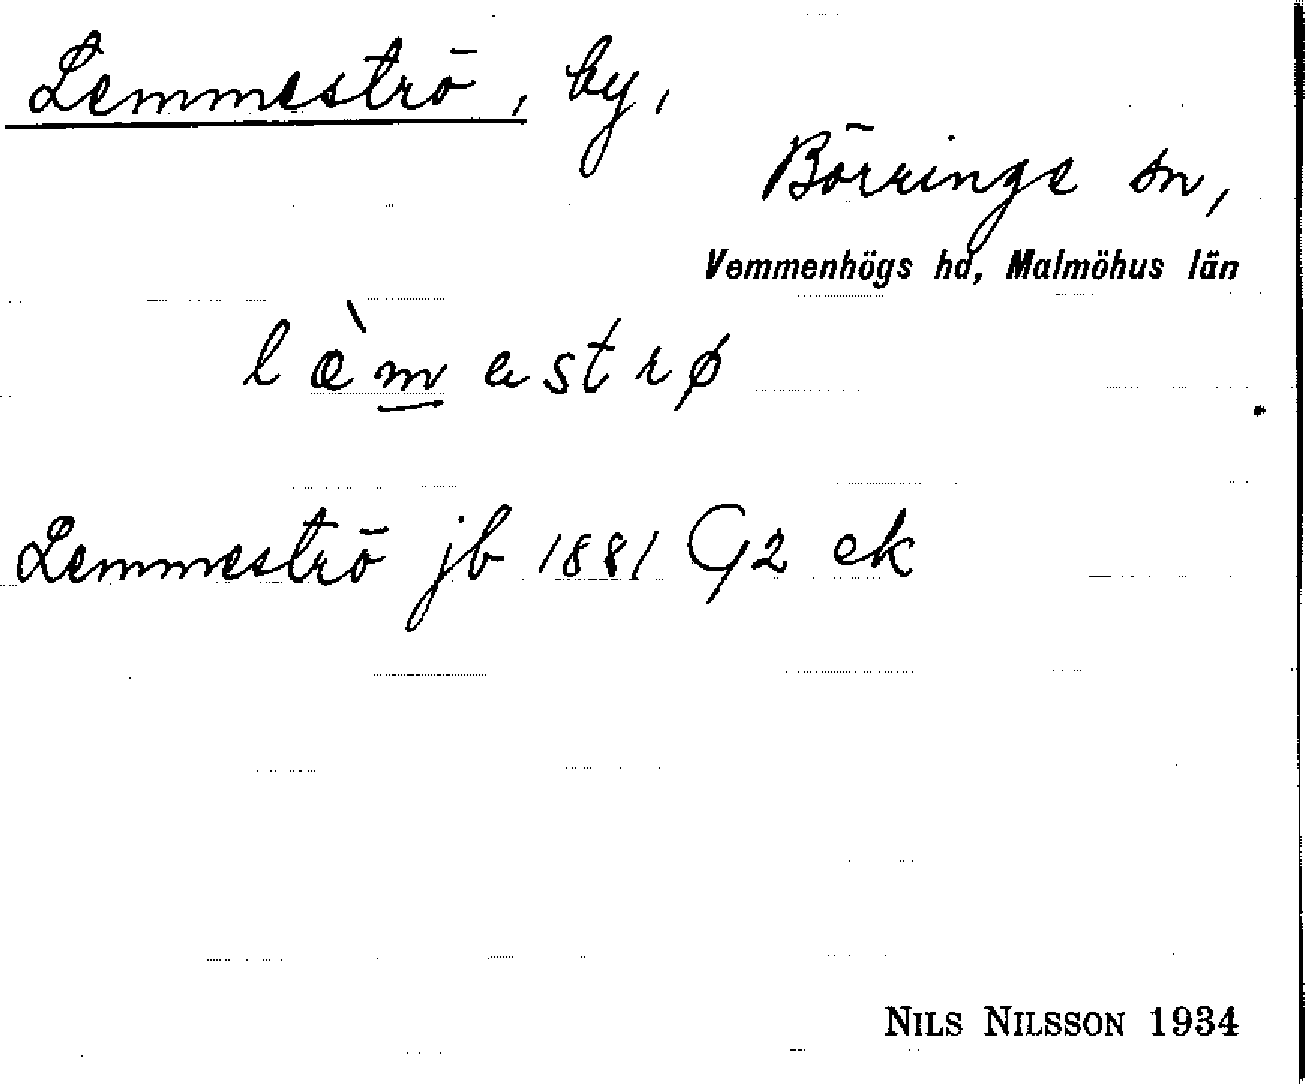 Lemmeströ, by,
Börringe sn,
Vemmenhögs hd, Malmöhus län
læ̀m̲estrø
Lemmeströ jb 1881 C/2 ek
NILS NILSSON 1934